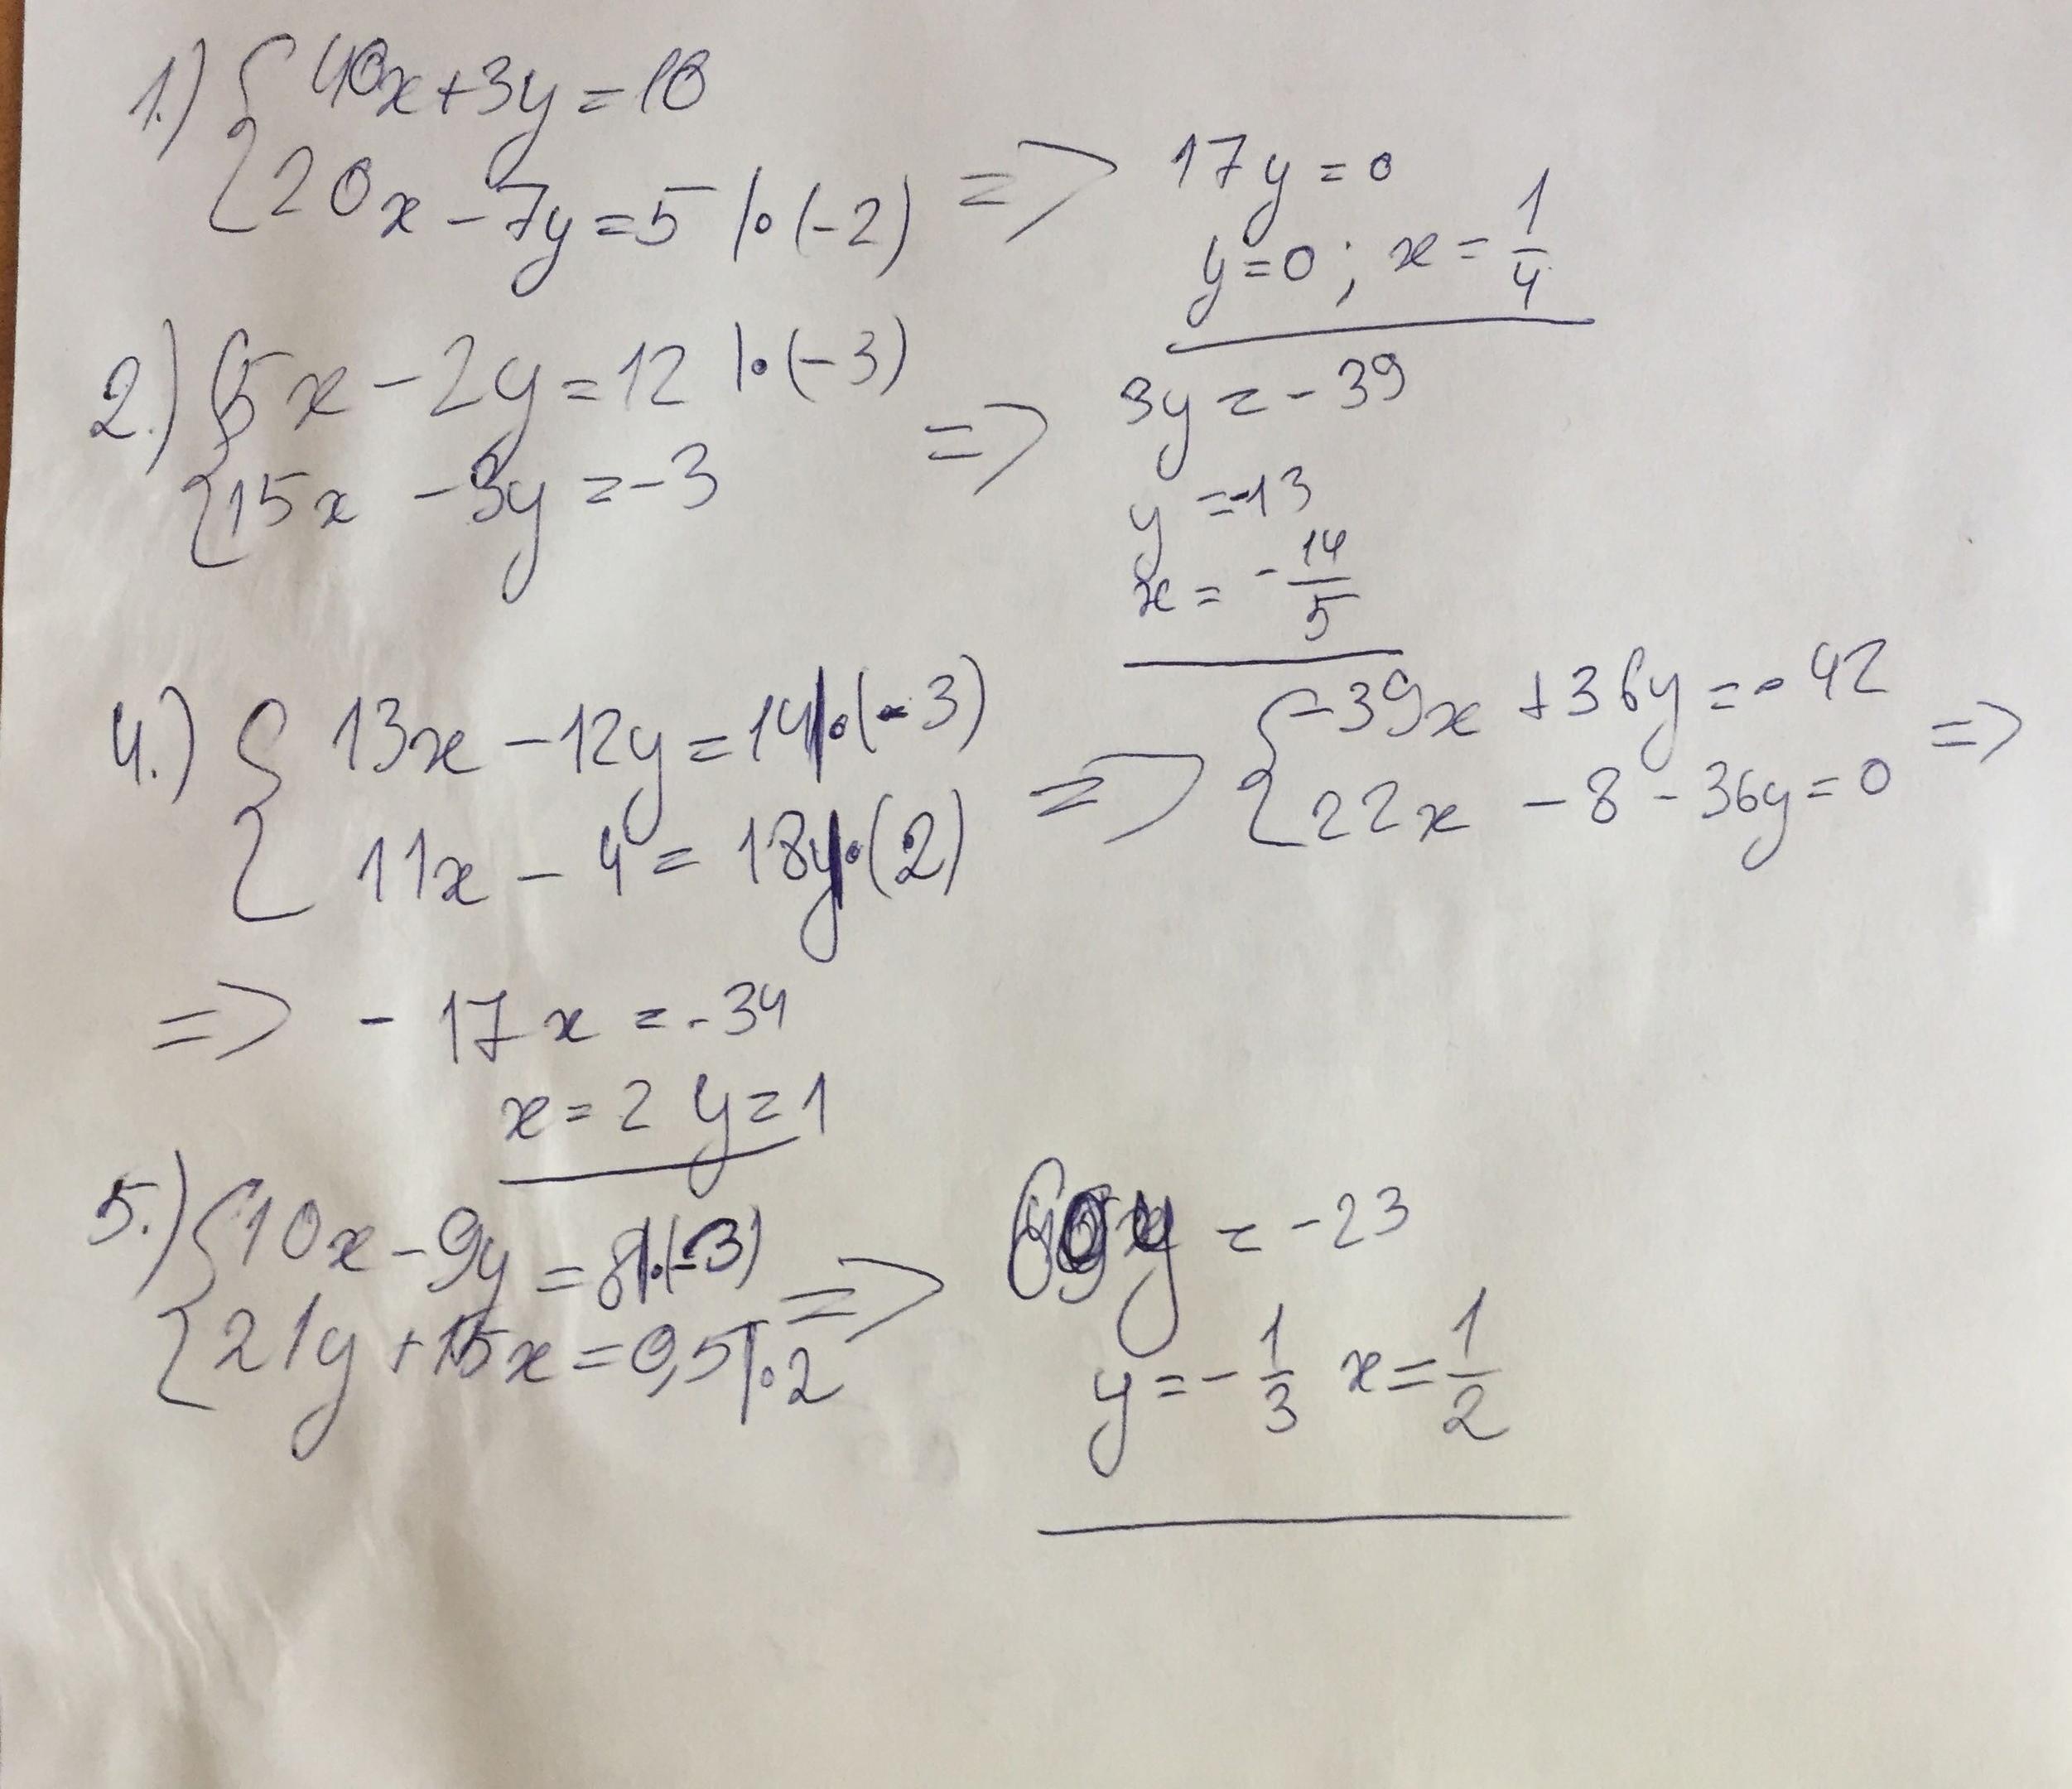 1.) { 40x + 3y = 10
20x - 7y = 5 |·(-2) => 17y = 0
y = 0; x = 1/4
2.) { 5x - 2y = 12 |·(-3)
15x - 3y = -3 => 3y = -39
y = -13
x = -14/5
4.) { 13x - 12y = 14 |·(-3)
11x - 4 = 18y |·(2) => { -39x + 36y = -42
22x - 8 - 36y = 0 =>
=> -17x = -34
x = 2 y = 1
5.) { 10x - 9y = 8 |·(-3)
21y + 15x = 0,5 |·2 => 69y = -23
y = -1/3 x = 1/2